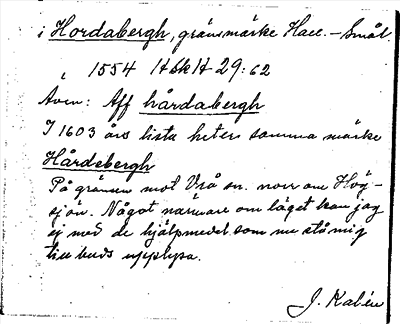 i Hordabergh, gränsmärke Hall. – Smål
1554 HSkH 29:62
Även: Aff hårdabergh
I 1603 års lista heter samma märke
Hårdebergh
På gränsen mot Vrå sn. norr om Hög-
sjön. Något närmare om läget kan jag
ej med de hjälpmedel som nu stå mig
till buds upplysa.
J. Kalén